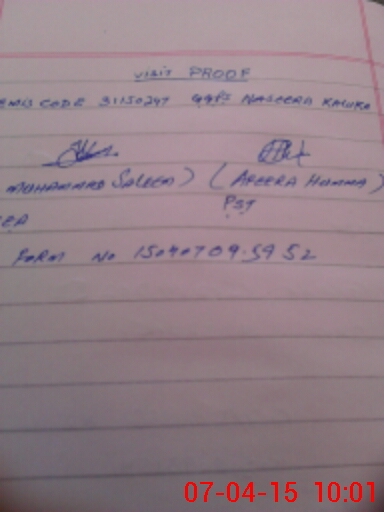 VISIT PROOF
EMIS CODE 31150247 GGPS NASEERA KALUKA
MUHAMMAD SALEEM) (AREERA HUMMA)
PST
FORM NO 15040709.5952
07-04-15 10:01